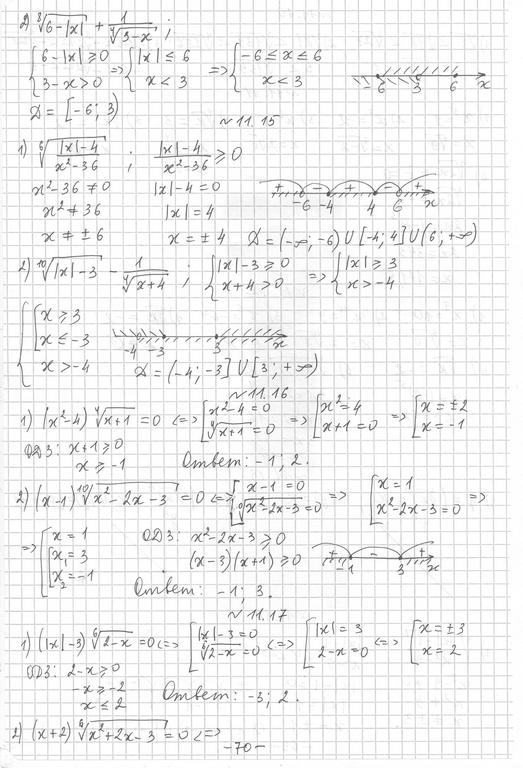 2) ⁸√(6-|x|) + 1/⁴√(3-x) ;
{ 6-|x| ≥ 0 ; 3-x > 0 => { |x| ≤ 6 ; x < 3 => { -6 ≤ x ≤ 6 ; x < 3
-6 3 6 x
D = [-6; 3)
~ 11.15
1) ⁶√((|x|-4)/(x²-36)) ; (|x|-4)/(x²-36) ≥ 0
x²-36 ≠ 0 |x|-4 = 0
+ - + - +
x² ≠ 36 |x| = 4
-6 -4 4 6 x
x ≠ ±6 x = ±4 D = (-∞; -6) U [-4; 4] U (6; +∞)
2) ¹⁰√(|x|-3) - 1/⁴√(x+4) ; { |x|-3 ≥ 0 ; x+4 > 0 => { |x| ≥ 3 ; x > -4
{ [ x ≥ 3 ; x ≤ -3 ; x > -4
-4 -3 3 x
D = (-4; -3] U [3; +∞)
~ 11.16
1) (x²-4) ⁴√(x+1) = 0 <=> [ x²-4 = 0 ; ⁴√(x+1) = 0 => [ x² = 4 ; x+1 = 0 => [ x = ±2 ; x = -1
ОДЗ: x+1 ≥ 0
x ≥ -1 Ответ: -1; 2.
2) (x-1) ¹⁰√(x²-2x-3) = 0 <=> [ x-1 = 0 ; ¹⁰√(x²-2x-3) = 0 => [ x = 1 ; x²-2x-3 = 0 =>
=> [ x = 1 ; [ x₁ = 3 ; x₂ = -1 ОДЗ: x²-2x-3 ≥ 0
(x-3)(x+1) ≥ 0
+ - +
-1 3 x
Ответ: -1; 3.
~ 11.17
1) (|x|-3) ⁶√(2-x) = 0 <=> [ |x|-3 = 0 ; ⁶√(2-x) = 0 <=> [ |x| = 3 ; 2-x = 0 <=> [ x = ±3 ; x = 2
ОДЗ: 2-x ≥ 0
-x ≥ -2
x ≤ 2 Ответ: -3; 2.
2) (x+2) ⁶√(x²+2x-3) = 0 <=>
-70-